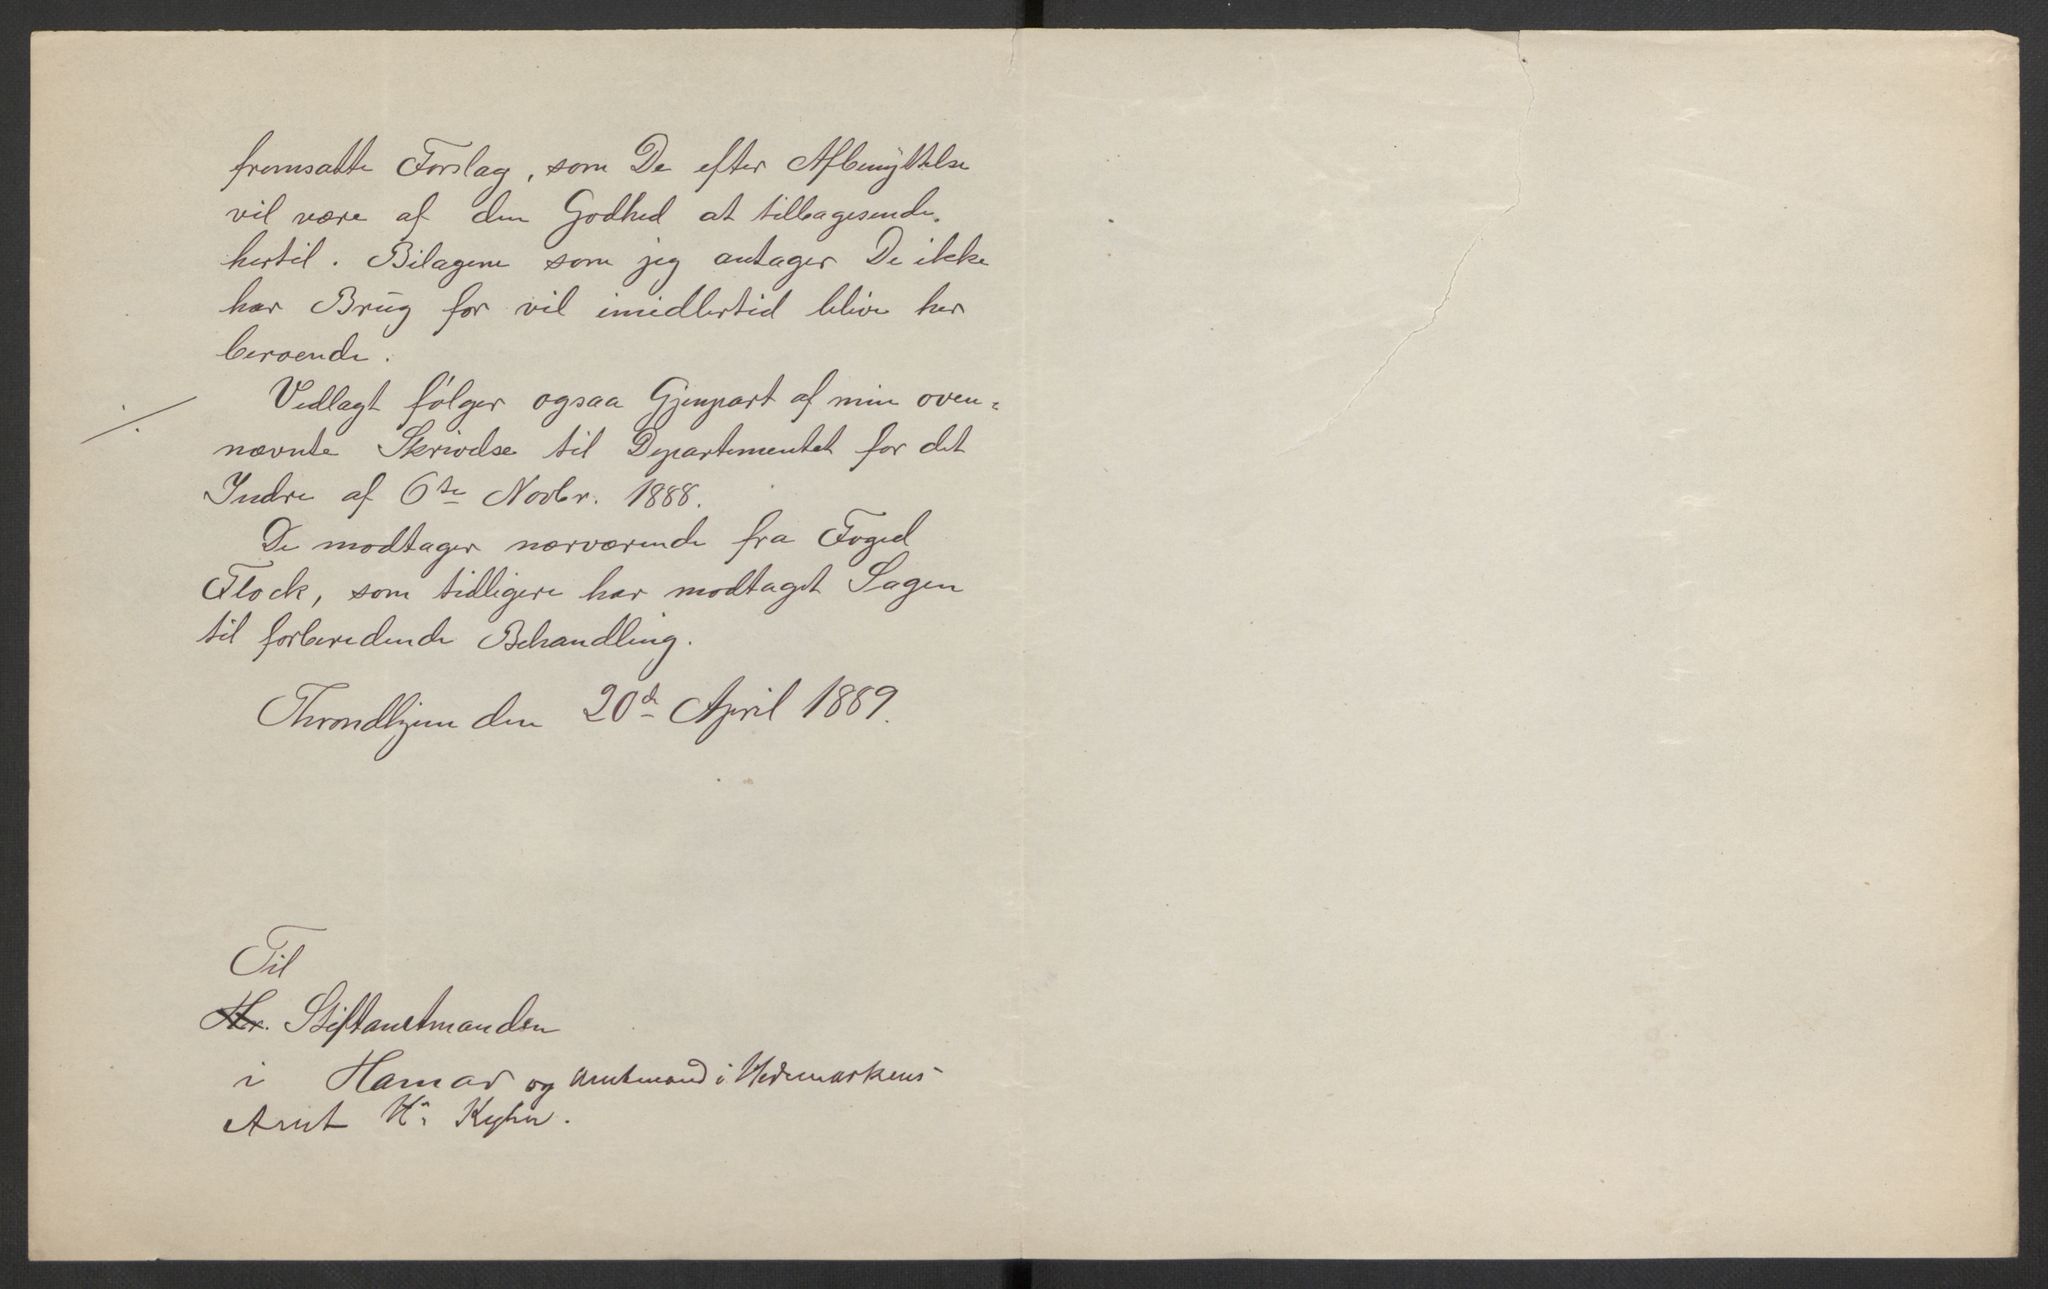 fremsatte Forslag, som De efter Afbenyttelse
vil være af den Godhed at tilbagesende
hertil. Bilagene som jeg antager De ikke
har Brug for vil imidlertid blive her
beroende.
./. Vedlagt følger ogsaa Gjenpart af min oven-
nævnte Skrivelse til Departementet for det
Indre af 6te Novbr. 1888.
De modtager nærværende fra Foged
Flock, som tidligere har modtaget Sagen
til forberedende Behandling.
Throndhjem den 20de April 1889.
Til
Hr. Stiftamtmanden
i Hamar og Amtmand i Hedemarkens
Amt Hr. Kyhn.